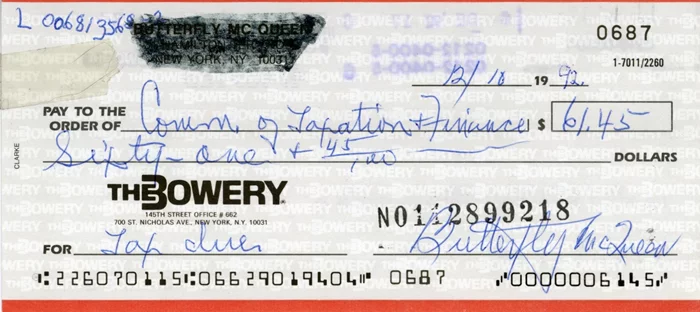 L 00681356
BUTTERFLY MC QUEEN
HAMILTON
NEW YORK, NY 10031
0687
1-7011/2260
12/18 1992
PAY TO THE
ORDER OF Comm. of Taxation & Finance $ 61.45
Sixty-one & 45/100 DOLLARS
CLARKE
THE BOWERY
145TH STREET OFFICE # 662
700 ST. NICHOLAS AVE., NEW YORK, N.Y. 10031
N0112899218
FOR Tax dues Butterfly McQueen
⑆226070115⑆06629019404⑈ 0687 ⑈0000006145⑈